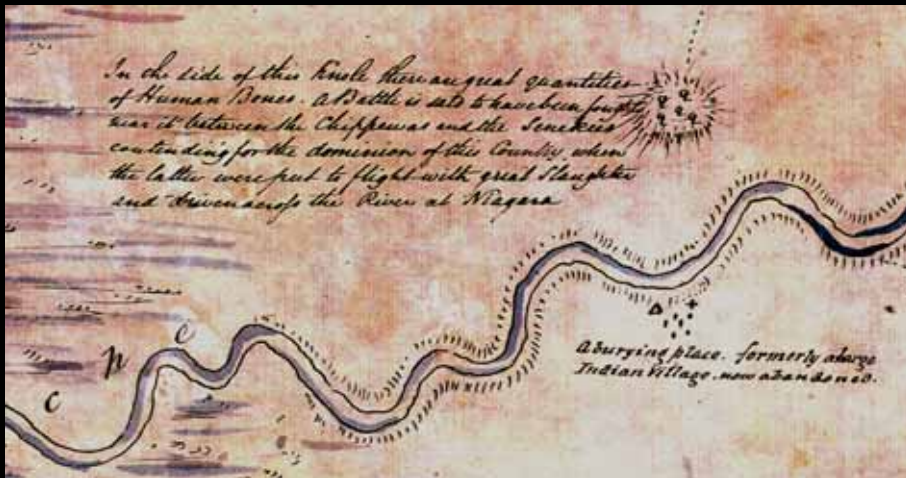 In the side of this Knole there are great quantities
of Human Bones. A Battle is said to have been fought
near it between the Chippewas and the Senekies
contending for the dominion of this Country, when
the latter were put to flight with great Slaughter
and driven across the River at Niagara
A burying place. formerly a large
Indian Village. now abandoned.
C n C